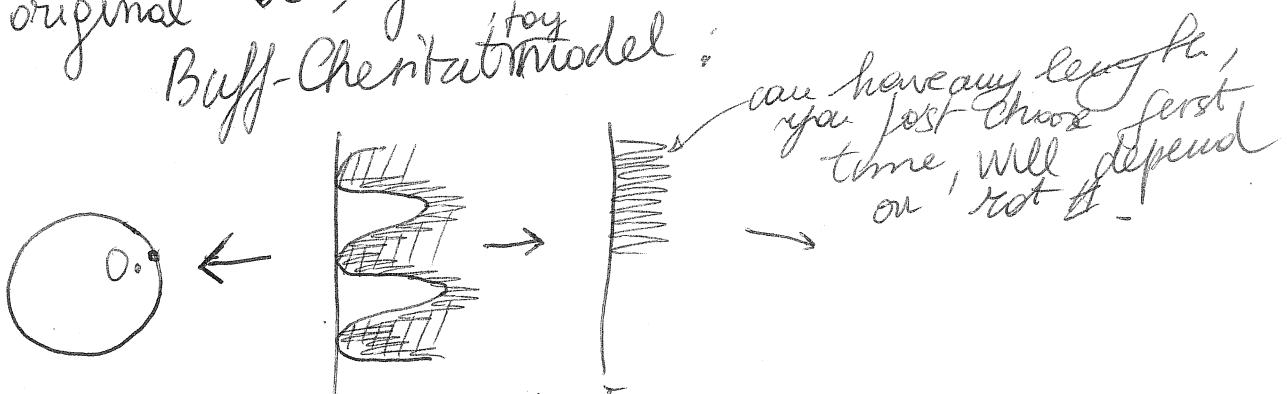 original
toy
Buff-Cheritat model :
can have any length,
you just choose first
time, will depend
on rot # !
0.